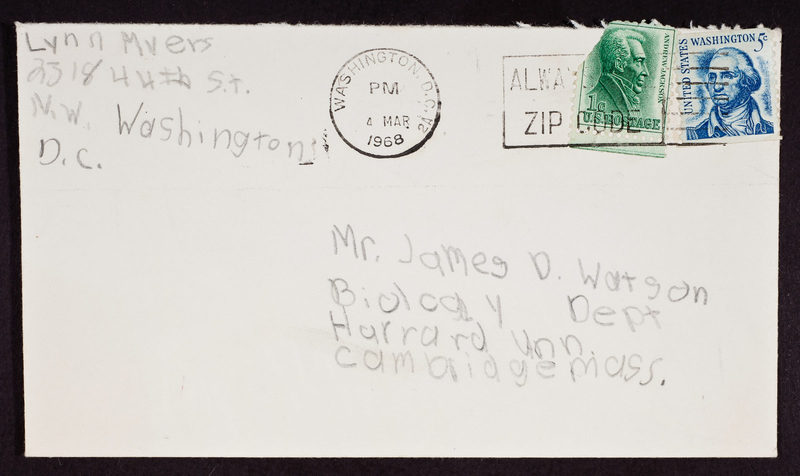 Lynn Myers
2318 44th St.
N.W. Washington,
D.C.
WASHINGTON, D.C.
PM
4 MAR
1968
ALWA
ZIP CODE
1¢
U.S. POSTAGE
ANDREW JACKSON
UNITED STATES
WASHINGTON 5c
Mr. James D. Watson
Biology Dept
Harrard Unn.
Cambridge Mass.